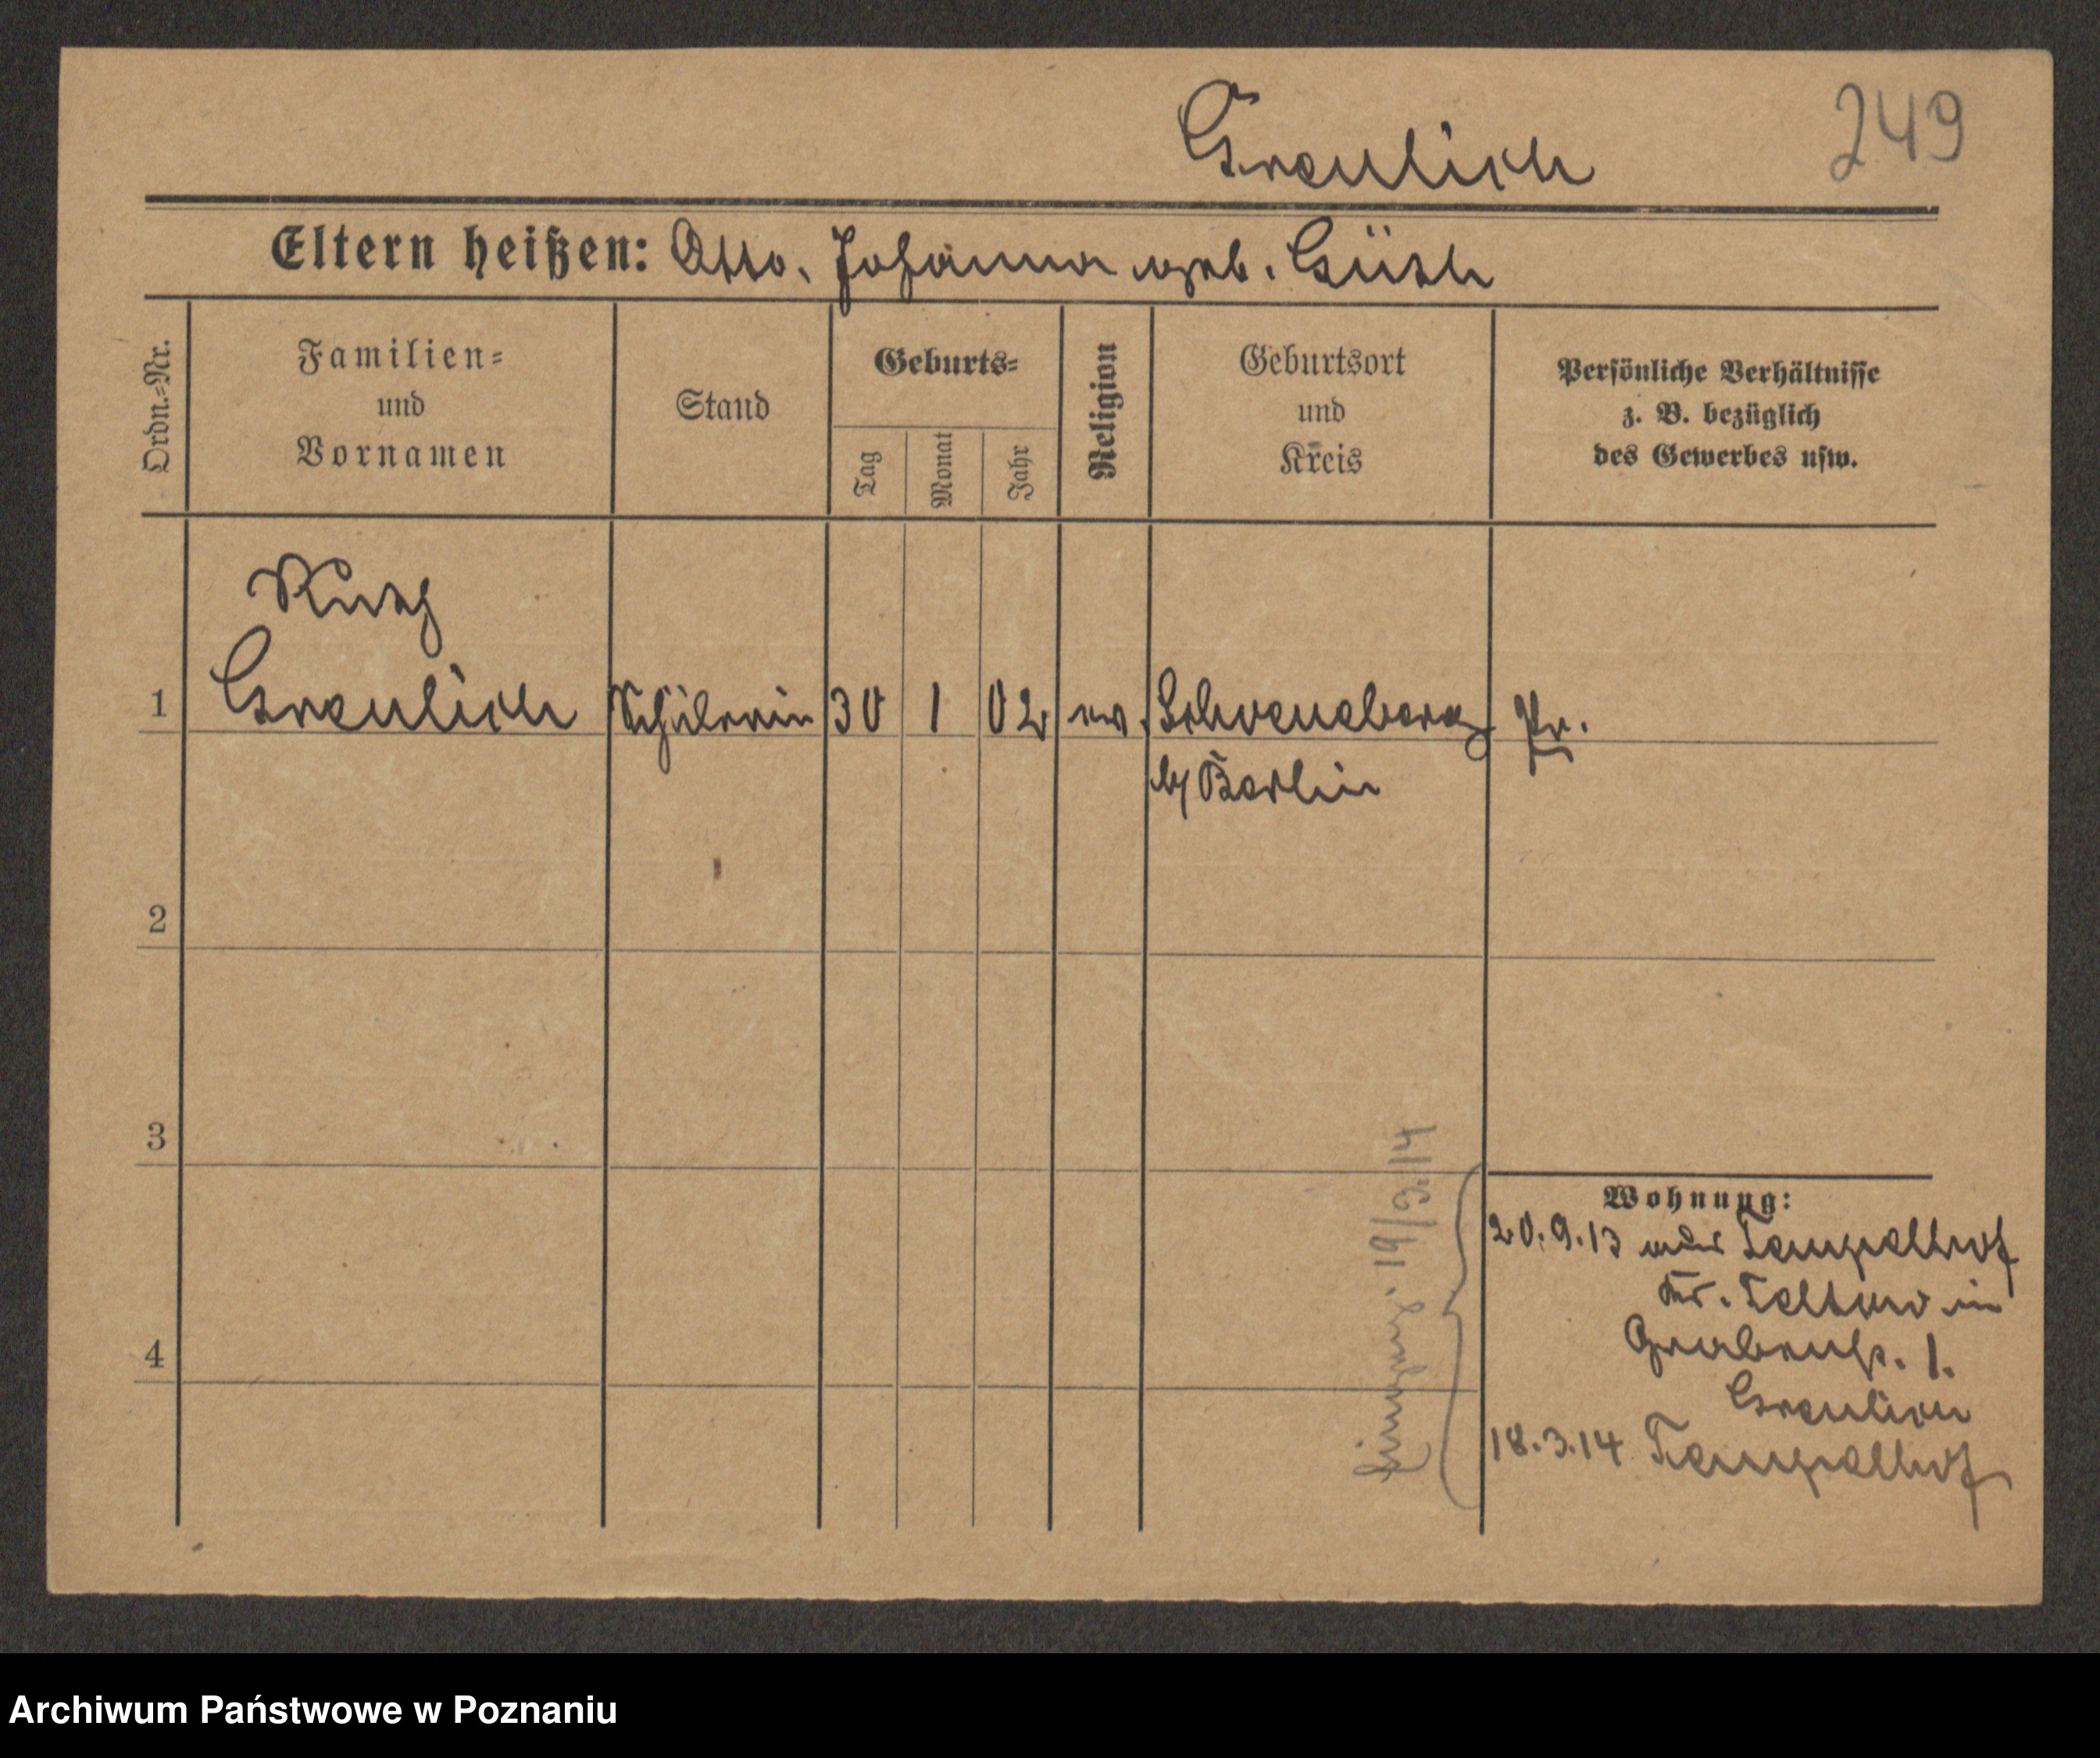 Greulich
249
Eltern heißen: Otto, Johanna geb. Güth
Ordn.-Nr.
Familien-
und
Vornamen
Stand
Geburts-
Tag
Monat
Jahr
Religion
Geburtsort
und
Kreis
Persönliche Verhältnisse
z. B. bezüglich
des Gewerbes usw.
Ruth
1 Greulich Schülerin 30 1 02 ev. Schoeneberg Pr.
b/ Berlin
2
3
4
Wohnung:
20.9.13 aus Tempelhof
Kr. Teltow in
1.
Greulich
18.3.14 Tempelhof
19/3.14
Archiwum Państwowe w Poznaniu